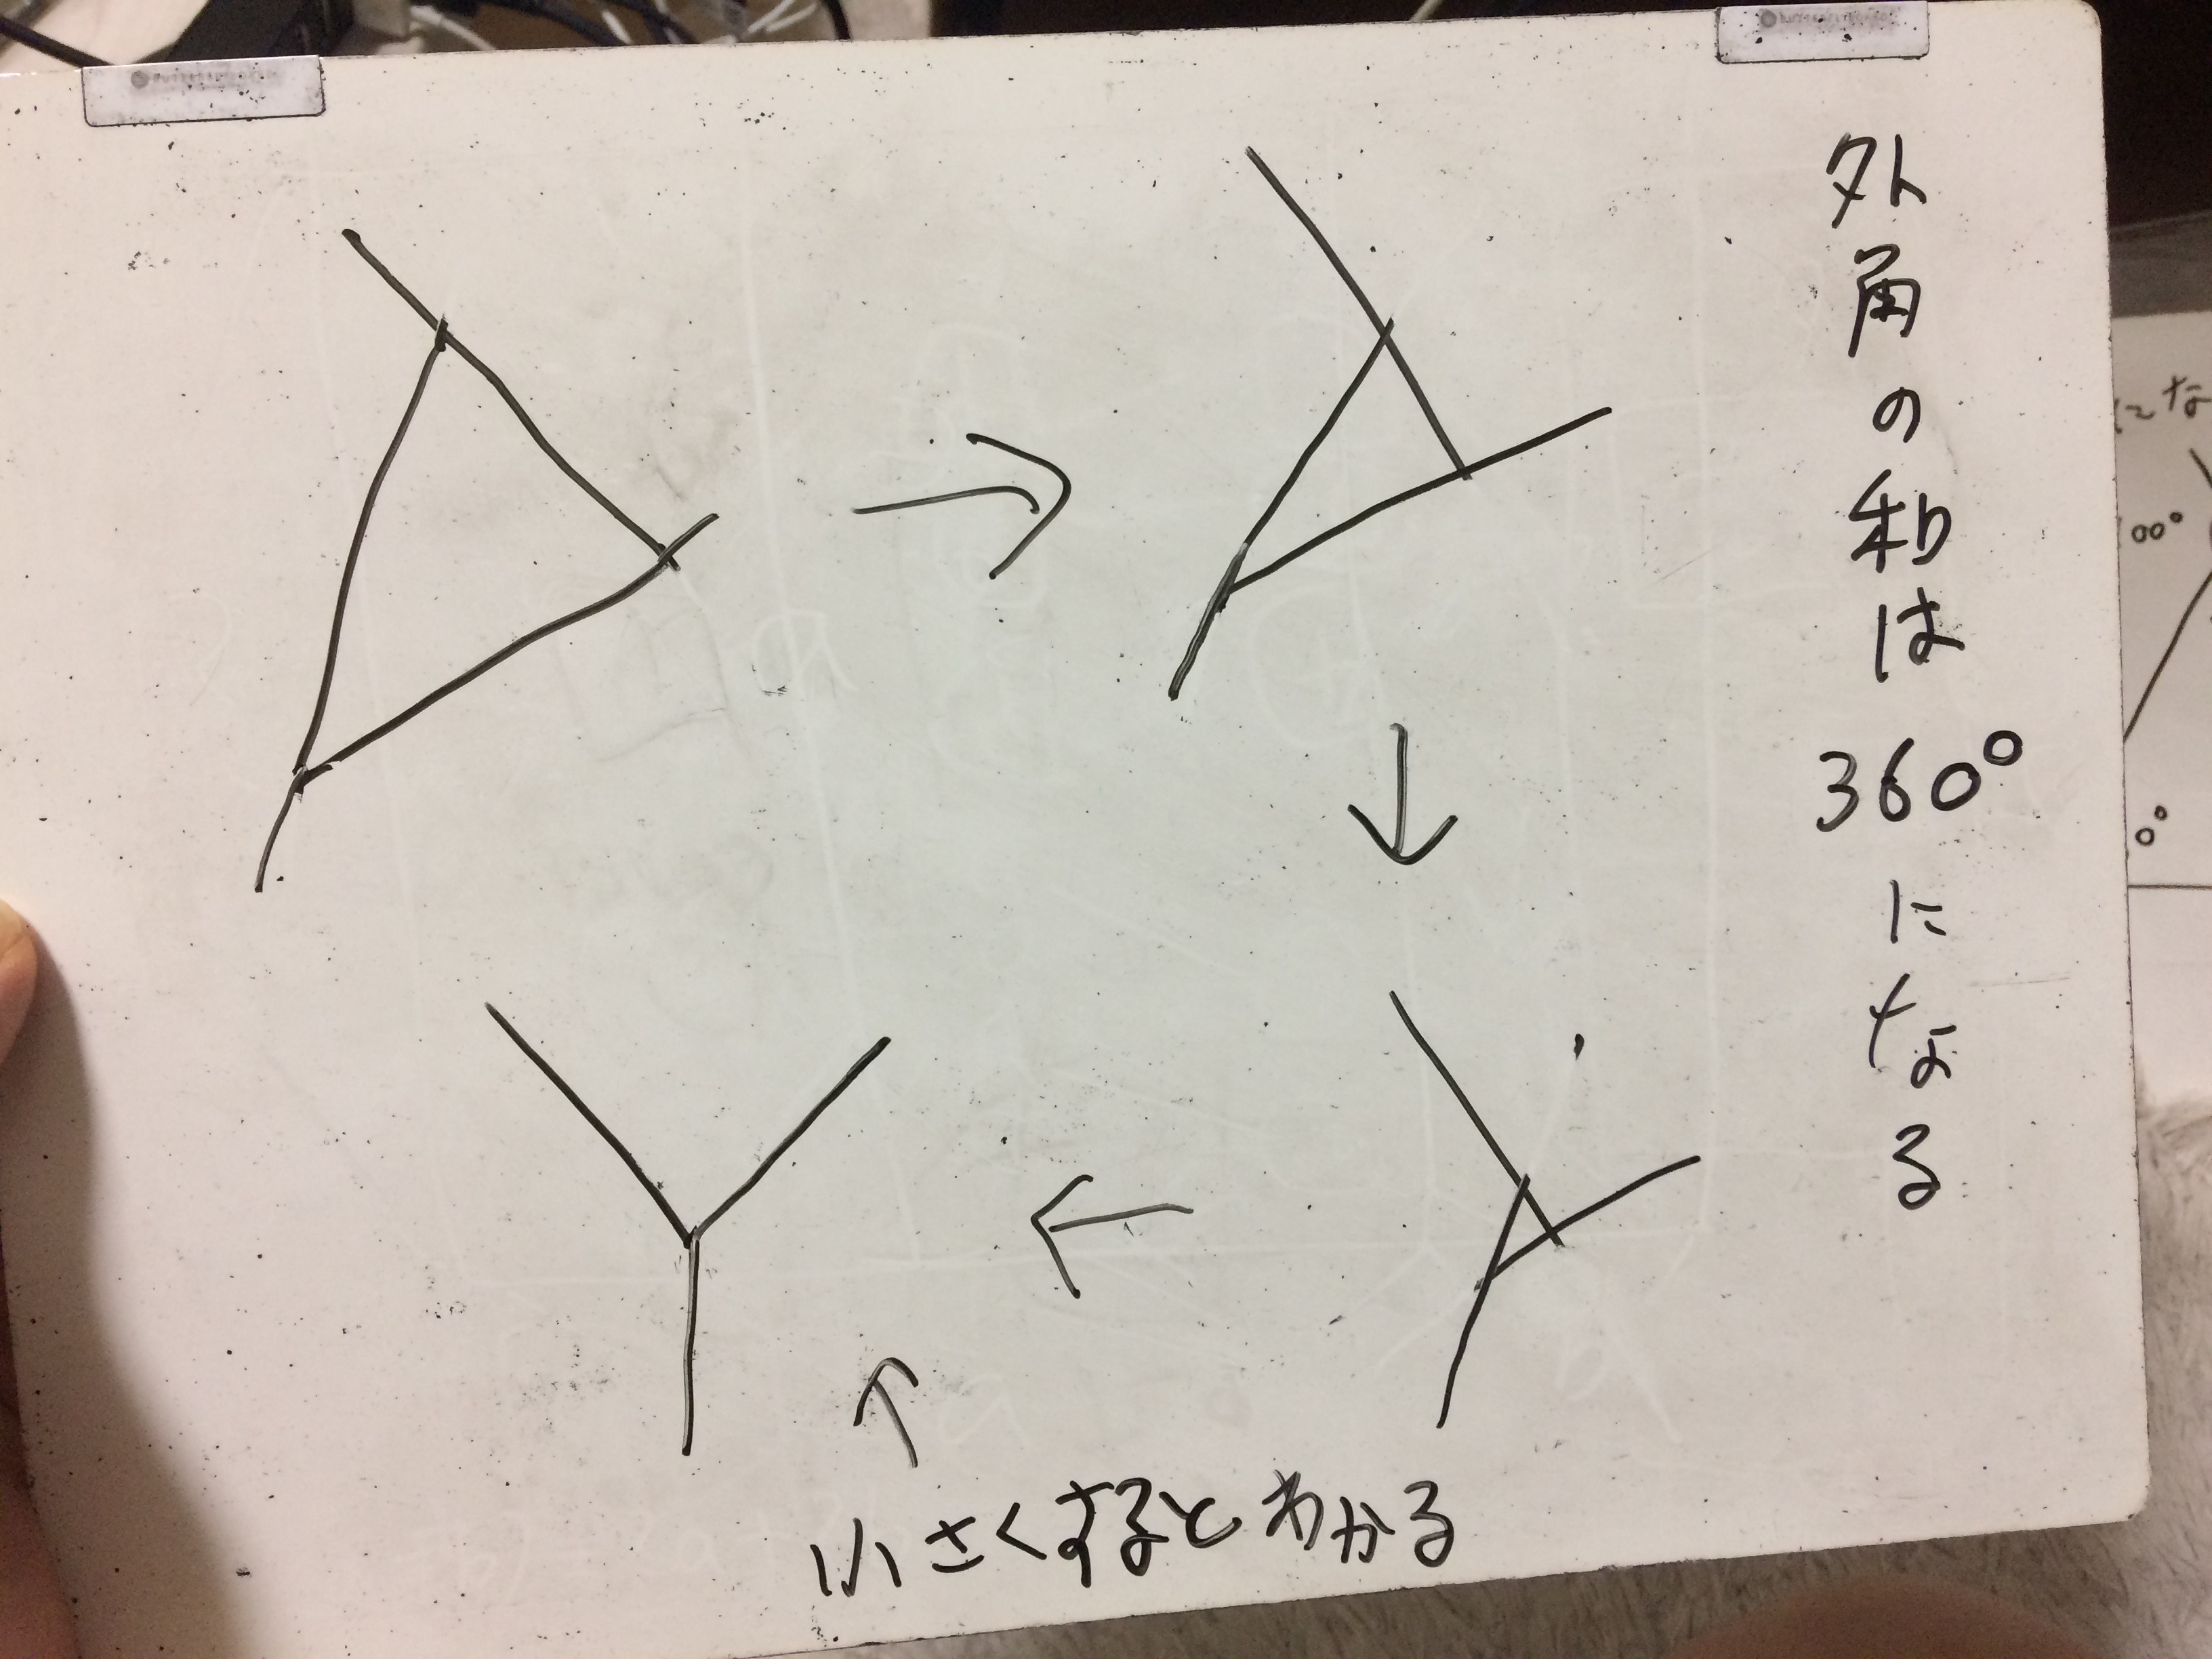 外角の和は360°になる
小さくするとわかる